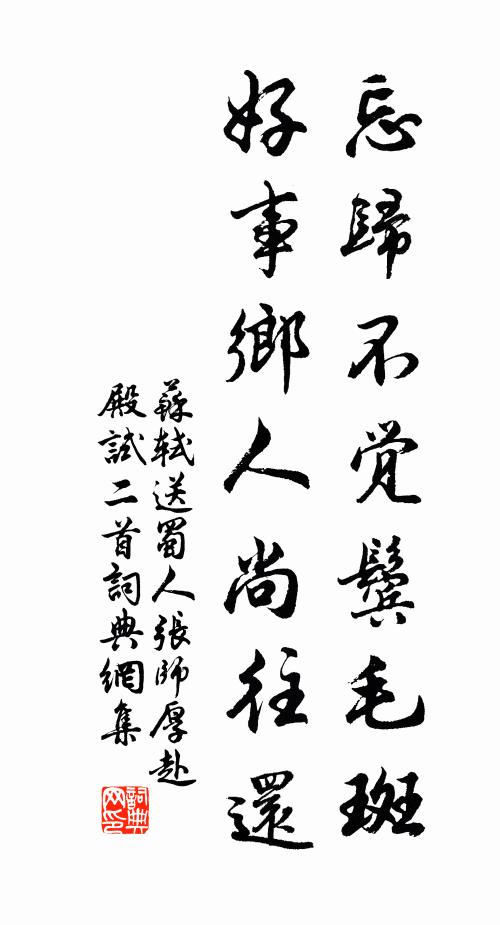 忘歸不觉鬓毛斑
好事鄉人尚往還
蘇軾送蜀人張師厚赴
殿試二首詞典網集
詞典网印